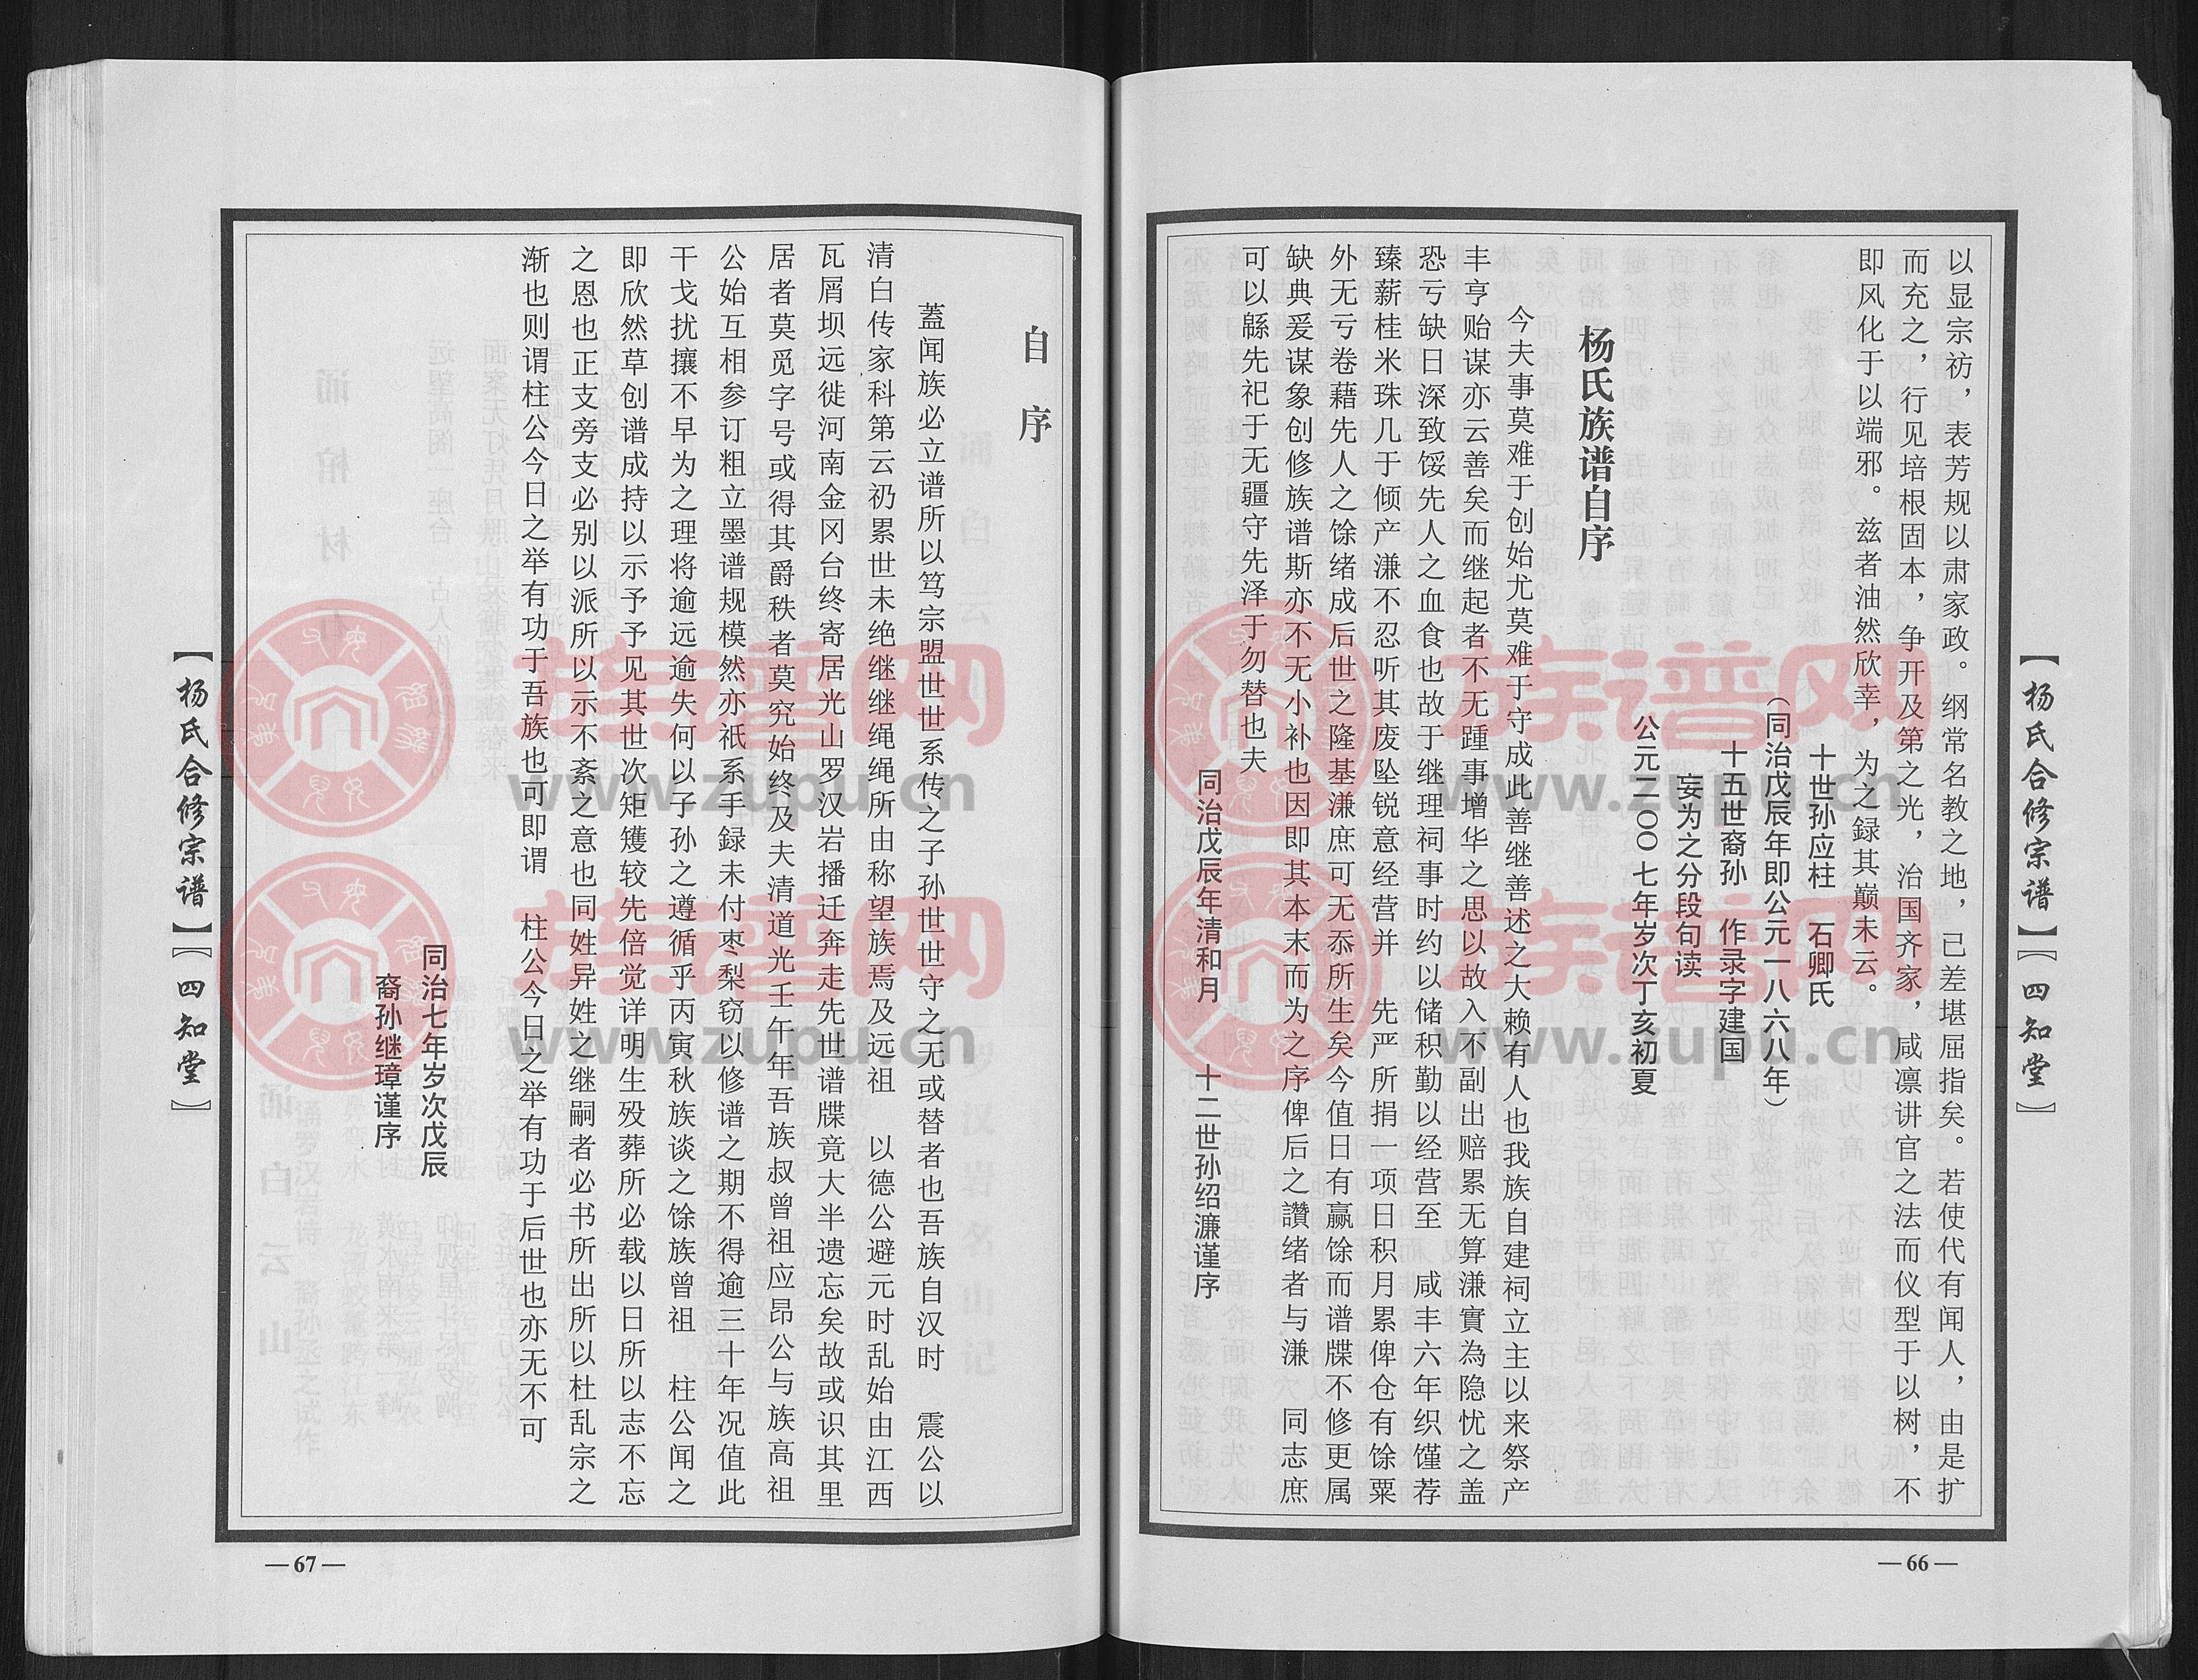 【杨氏合修宗谱】【四知堂】
以显宗祊，表芳规以肃家政。纲常名教之地，已差堪屈指矣。若使代有闻人，由是扩
而充之，行见培根固本，争开及第之光，治国齐家，咸凛讲官之法而仪型于以树，不
即风化于以端邪。兹者油然欣幸，为之録其巅末云。
十世孙应柱　石卿氏
（同治戊辰年即公元一八六八年）
十五世裔孙　作录字建国
妄为之分段句读
公元二〇〇七年岁次丁亥初夏
杨氏族谱自序
今夫事莫难于创始尤莫难于守成此善继善述之大赖有人也我族自建祠立主以来祭产
丰亨贻谋亦云善矣而继起者不无踵事增华之思以故入不副出赔累无算溓實為隐忧之盖
恐亏缺日深致馁先人之血食也故于继理祠事时约以储积勤以经营至　咸丰六年织馑荐
臻薪桂米珠几于倾产溓不忍听其废坠锐意经营并　先严所捐一项日积月累俾仓有馀粟
外无亏卷藉先人之馀绪成后世之隆基溓庶可无忝所生矣今值日有赢馀而谱牒不修更属
缺典爰谋象创修族谱斯亦不无小补也因即其本末而为之序俾后之讚绪者与溓　同志庶
可以緜先祀于无疆守先泽于勿替也夫
同治戊辰年清和月　　十二世孙绍濂谨序
— 66 —
自序
蓋闻族必立谱所以笃宗盟世世系传之子孙世世守之无或替者也吾族自汉时　震公以
清白传家科第云礽累世未绝继继绳绳所由称望族焉及远祖　以德公避元时乱始由江西
瓦屑坝远徙河南金冈台终寄居光山罗汉岩播迁奔走先世谱牒竟大半遗忘矣故或识其里
居者莫觅字号或得其爵秩者莫究始终及夫清道光壬午年吾族叔曾祖应昂公与族高祖
公始互相参订粗立墨谱规模然亦祇系手録未付枣梨窃以修谱之期不得逾三十年况值此
干戈扰攘不早为之理将逾远逾失何以子孙之遵循乎丙寅秋族谈之馀族曾祖　柱公闻之
即欣然草创谱成持以示予予见其世次矩矱较先倍觉详明生殁葬所必载以日所以志不忘
之恩也正支旁支必别以派所以示不紊之意也同姓异姓之继嗣者必书所出所以杜乱宗之
渐也则谓柱公今日之举有功于吾族也可即谓　柱公今日之举有功于后世也亦无不可
同治七年岁次戊辰
裔孙继璋谨序
【杨氏合修宗谱】【四知堂】
— 67 —
族谱网
www.zupu.cn
族谱网
www.zupu.cn
族谱网
www.zupu.cn
族谱网
www.zupu.cn